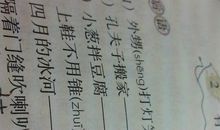 外甥(shēng)打灯
孔夫子搬家
小葱拌豆腐
上鞋不用锥(zhuī
四月的冰河
隔着门缝吹喇叭